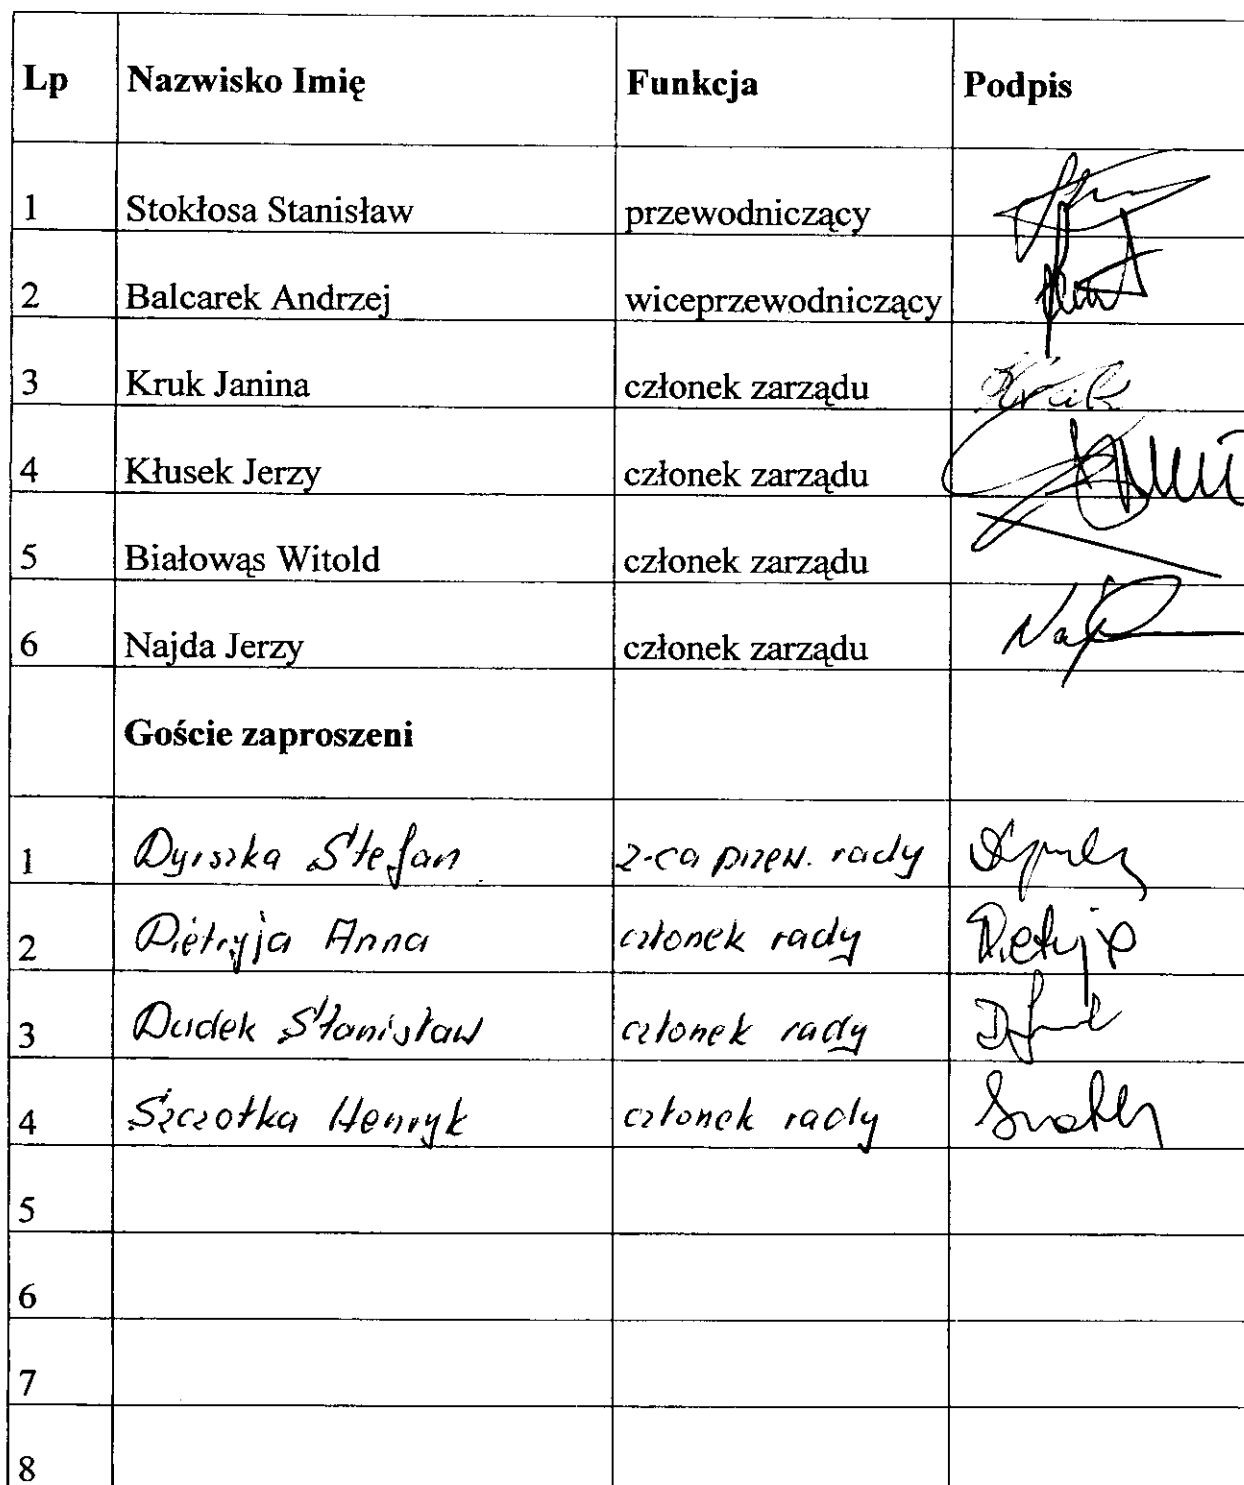 Lp Nazwisko Imię Funkcja Podpis
1 Stokłosa Stanisław przewodniczący
2 Balcarek Andrzej wiceprzewodniczący
3 Kruk Janina członek zarządu Kruk
4 Kłusek Jerzy członek zarządu
5 Białowąs Witold członek zarządu
6 Najda Jerzy członek zarządu
Goście zaproszeni
1 Dyrszka Stefan z-ca przew. rady
2 Pietryja Anna członek rady Pietryja
3 Dudek Stanisław członek rady
4 Szczotka Henryk członek rady
5
6
7
8